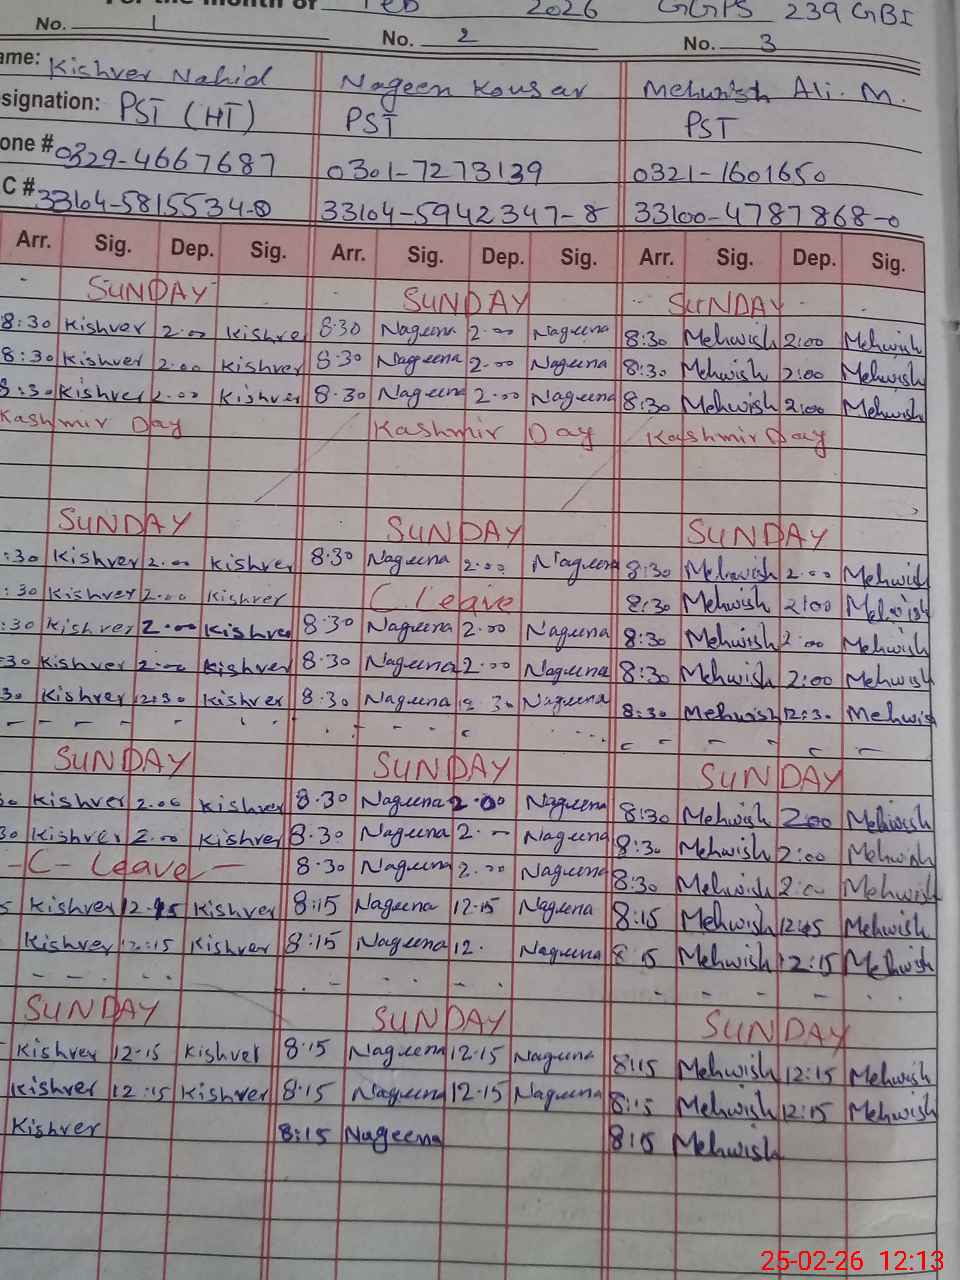 For the month of Feb 2026 GGPS 239 GBI
No. 1 No. 2 No. 3
ame: Kishver Nahid Nageen Kousar Mehwish Ali. M.
signation: PST (HT) PST PST
one # 0329-4667687 0301-7273139 0321-1601650
C # 33104-5815534-8 33104-5942347-8 33100-4787868-0
Arr. Sig. Dep. Sig. Arr. Sig. Dep. Sig. Arr. Sig. Dep. Sig.
SUNDAY SUNDAY SUNDAY
8:30 Kishver 2.00 Kishver 8.30 Nageena 2.00 Nageena 8:30 Mehwish 2:00 Mehwish
8:30 Kishver 2.00 Kishver 8.30 Nageena 2.00 Nageena 8:30 Mehwish 2:00 Mehwish
8:30 Kishver 2.00 Kishver 8.30 Nageena 2.00 Nageena 8:30 Mehwish 2:00 Mehwish
Kashmir Day Kashmir Day Kashmir Day
SUNDAY SUNDAY SUNDAY
:30 Kishver 2.00 Kishver 8.30 Nageena 2.00 Nageena 8:30 Mehwish 2.00 Mehwish
:30 Kishver 2.00 Kishver C. Leave 8:30 Mehwish 2:00 Mehwish
:30 Kishver 2.00 Kishver 8.30 Nageena 2.00 Nageena 8:30 Mehwish 2:00 Mehwish
30 Kishver 2.00 Kishver 8.30 Nageena 2.00 Nageena 8:30 Mehwish 2:00 Mehwish
30 Kishver 12:30 Kishver 8.30 Nageena 12.30 Nageena 8:30 Mehwish 12:30 Mehwish
SUNDAY SUNDAY SUNDAY
30 Kishver 2.00 Kishver 8.30 Nageena 2.00 Nageena 8:30 Mehwish 200 Mehwish
30 Kishver 2.00 Kishver 8.30 Nageena 2. Nageena 8:30 Mehwish 2:00 Mehwish
-C- Leave- 8.30 Nageena 2.00 Nageena 8:30 Mehwish 2:00 Mehwish
5 Kishver 12.15 Kishver 8:15 Nageena 12.15 Nageena 8:15 Mehwish Mehwish
Kishver 12:15 Kishver 8:15 Nageena 12. Nageena 8:15 Mehwish 12:15 Mehwish
SUNDAY SUNDAY SUNDAY
Kishver 12.15 Kishver 8:15 Nageena 12.15 Nageena 8:15 Mehwish 12:15 Mehwish
Kishver 12:15 Kishver 8:15 Nageena 12.15 Nageena 8:15 Mehwish 12:15 Mehwish
Kishver 8:15 Nageena 8:15 Mehwish
25-02-26 12:13